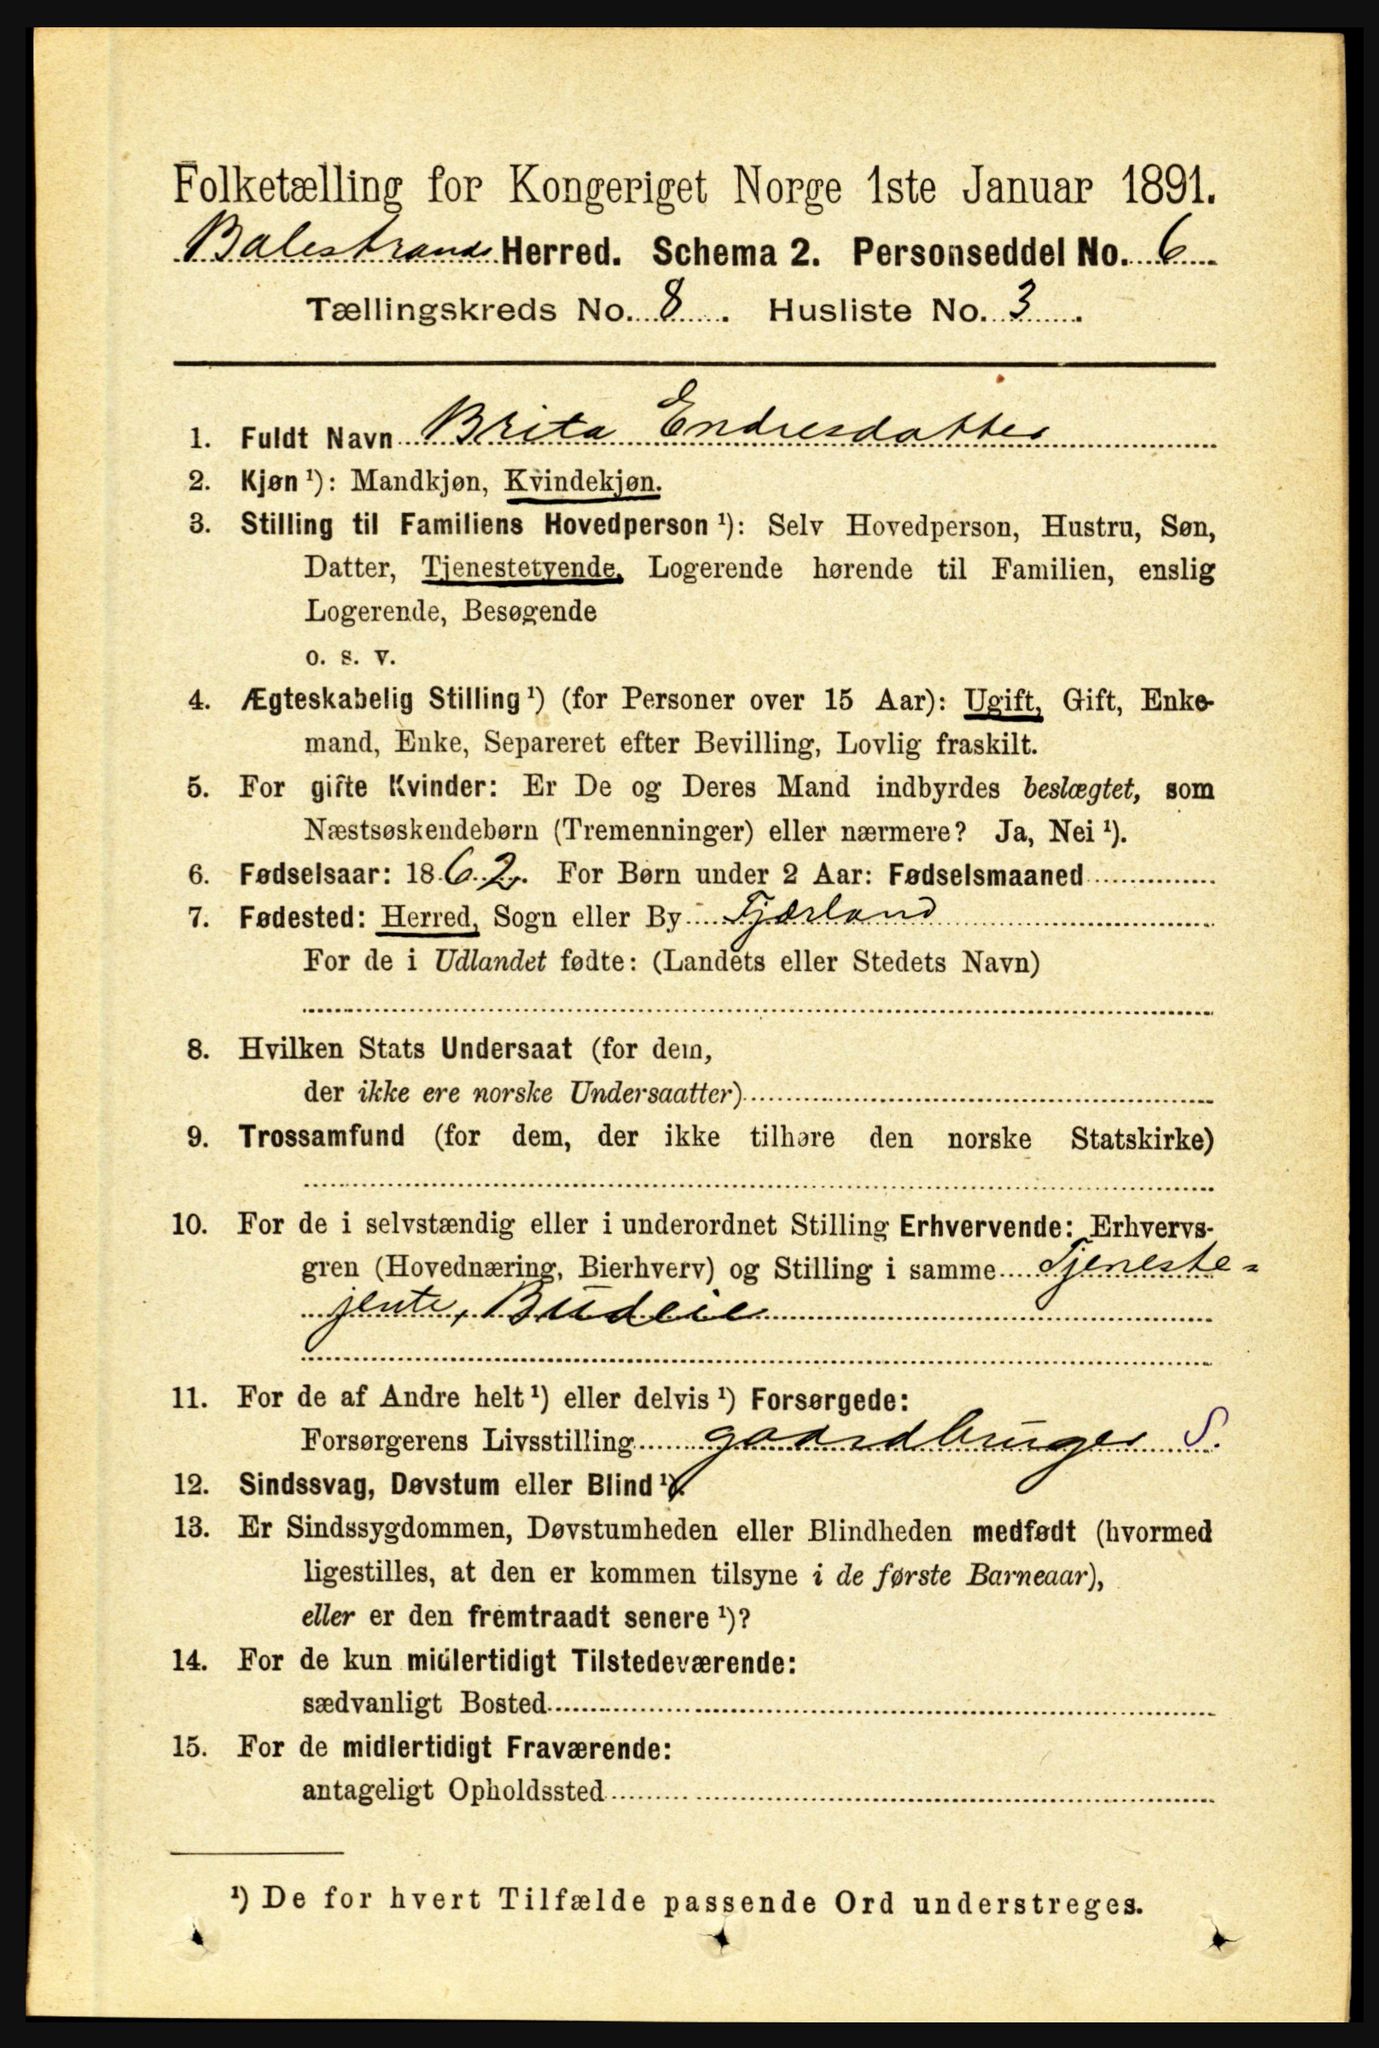 Folketælling for Kongeriget Norge 1ste Januar 1891.
Balestrands Herred. Schema 2. Personseddel No. 6
Tællingskreds No. 8. Husliste No. 3.
1. Fuldt Navn Brita Endresdatter
2. Kjøn ¹): Mandkjøn, Kvindekjøn.
3. Stilling til Familiens Hovedperson ¹): Selv Hovedperson, Hustru, Søn,
Datter, Tjenestetyende, Logerende hørende til Familien, enslig
Logerende, Besøgende
o. s. v.
4. Ægteskabelig Stilling ¹) (for Personer over 15 Aar): Ugift, Gift, Enke-
mand, Enke, Separeret efter Bevilling, Lovlig fraskilt.
5. For gifte Kvinder: Er De og Deres Mand indbyrdes beslægtet, som
Næstsøskendebørn (Tremenninger) eller nærmere? Ja, Nei ¹).
6. Fødselsaar: 1862. For Børn under 2 Aar: Fødselsmaaned
7. Fødested: Herred, Sogn eller By Fjærland
For de i Udlandet fødte: (Landets eller Stedets Navn)
8. Hvilken Stats Undersaat (for dem,
der ikke ere norske Undersaatter)
9. Trossamfund (for dem, der ikke tilhøre den norske Statskirke)
10. For de i selvstændig eller i underordnet Stilling Erhvervende: Erhvervs-
gren (Hovednæring, Bierhverv) og Stilling i samme Tjeneste-
jente, Budeie
11. For de af Andre helt ¹) eller delvis ¹) Forsørgede:
Forsørgerens Livsstilling gaardbruger S.
12. Sindssvag, Døvstum eller Blind ¹).
13. Er Sindssygdommen, Døvstumheden eller Blindheden medfødt (hvormed
ligestilles, at den er kommen tilsyne i de første Barneaar),
eller er den fremtraadt senere ¹)?
14. For de kun midlertidigt Tilstedeværende:
sædvanligt Bosted
15. For de midlertidigt Fraværende:
antageligt Opholdssted
¹) De for hvert Tilfælde passende Ord understreges.